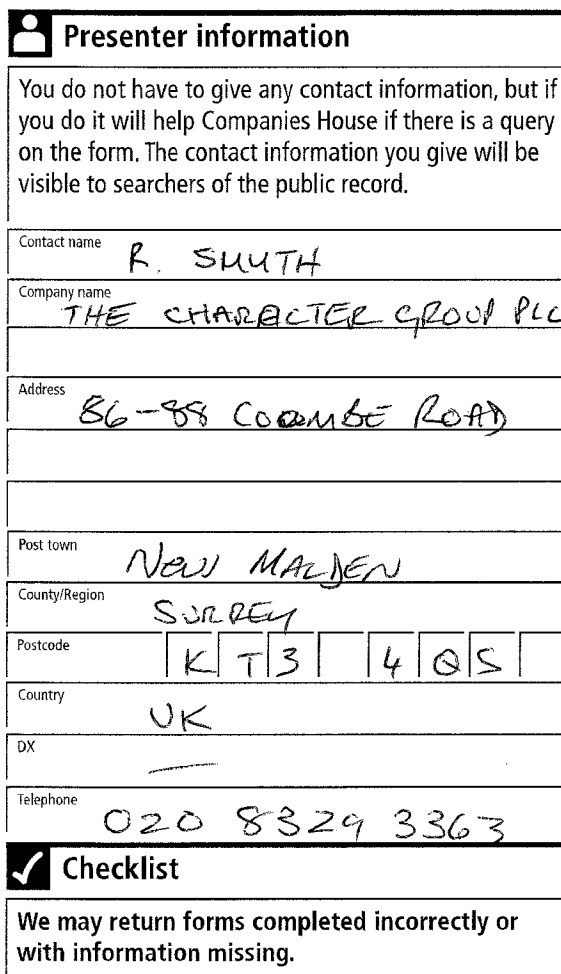 Presenter information
You do not have to give any contact information, but if
you do it will help Companies House if there is a query
on the form. The contact information you give will be
visible to searchers of the public record.
Contact name R. SMYTH
Company name THE CHARACTER GROUP PLC
Address 86-88 COOMBE ROAD
Post town NEW MALDEN
County/Region SURREY
Postcode KT3 4QS
Country UK
DX —
Telephone 020 8329 3363
Checklist
We may return forms completed incorrectly or
with information missing.